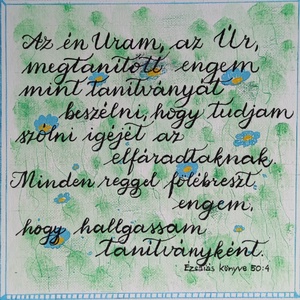 Az én Uram, az Úr,
megtanított engem
mint tanítványát
beszélni, hogy tudjam
szólni igéjét az
elfáradtaknak.
Minden reggel fölébreszt
engem,
hogy hallgassam
tanítványként.
Ézsaiás könyve 50:4